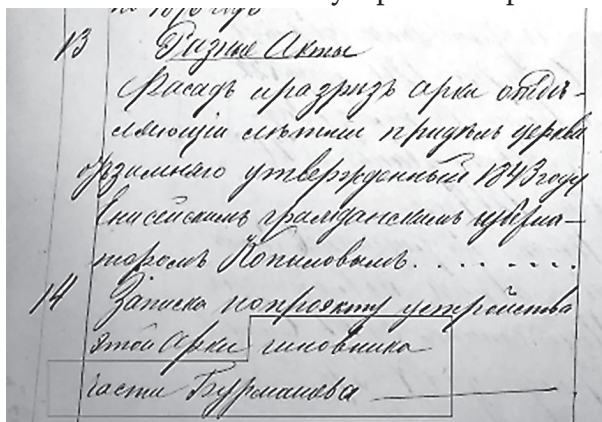 13 Разные Акты
Фасадъ и разрѣзъ арки отдѣ-
ляющія лѣтнии придѣлъ церкви
отъ зимняго утвержденный 1843 году
Енисейскимъ гражданскимъ губерна-
торомъ Копыловымъ . . . . . . .
14 Записка по проэкту устройства
этой Арки чиновника
части Бурмакова